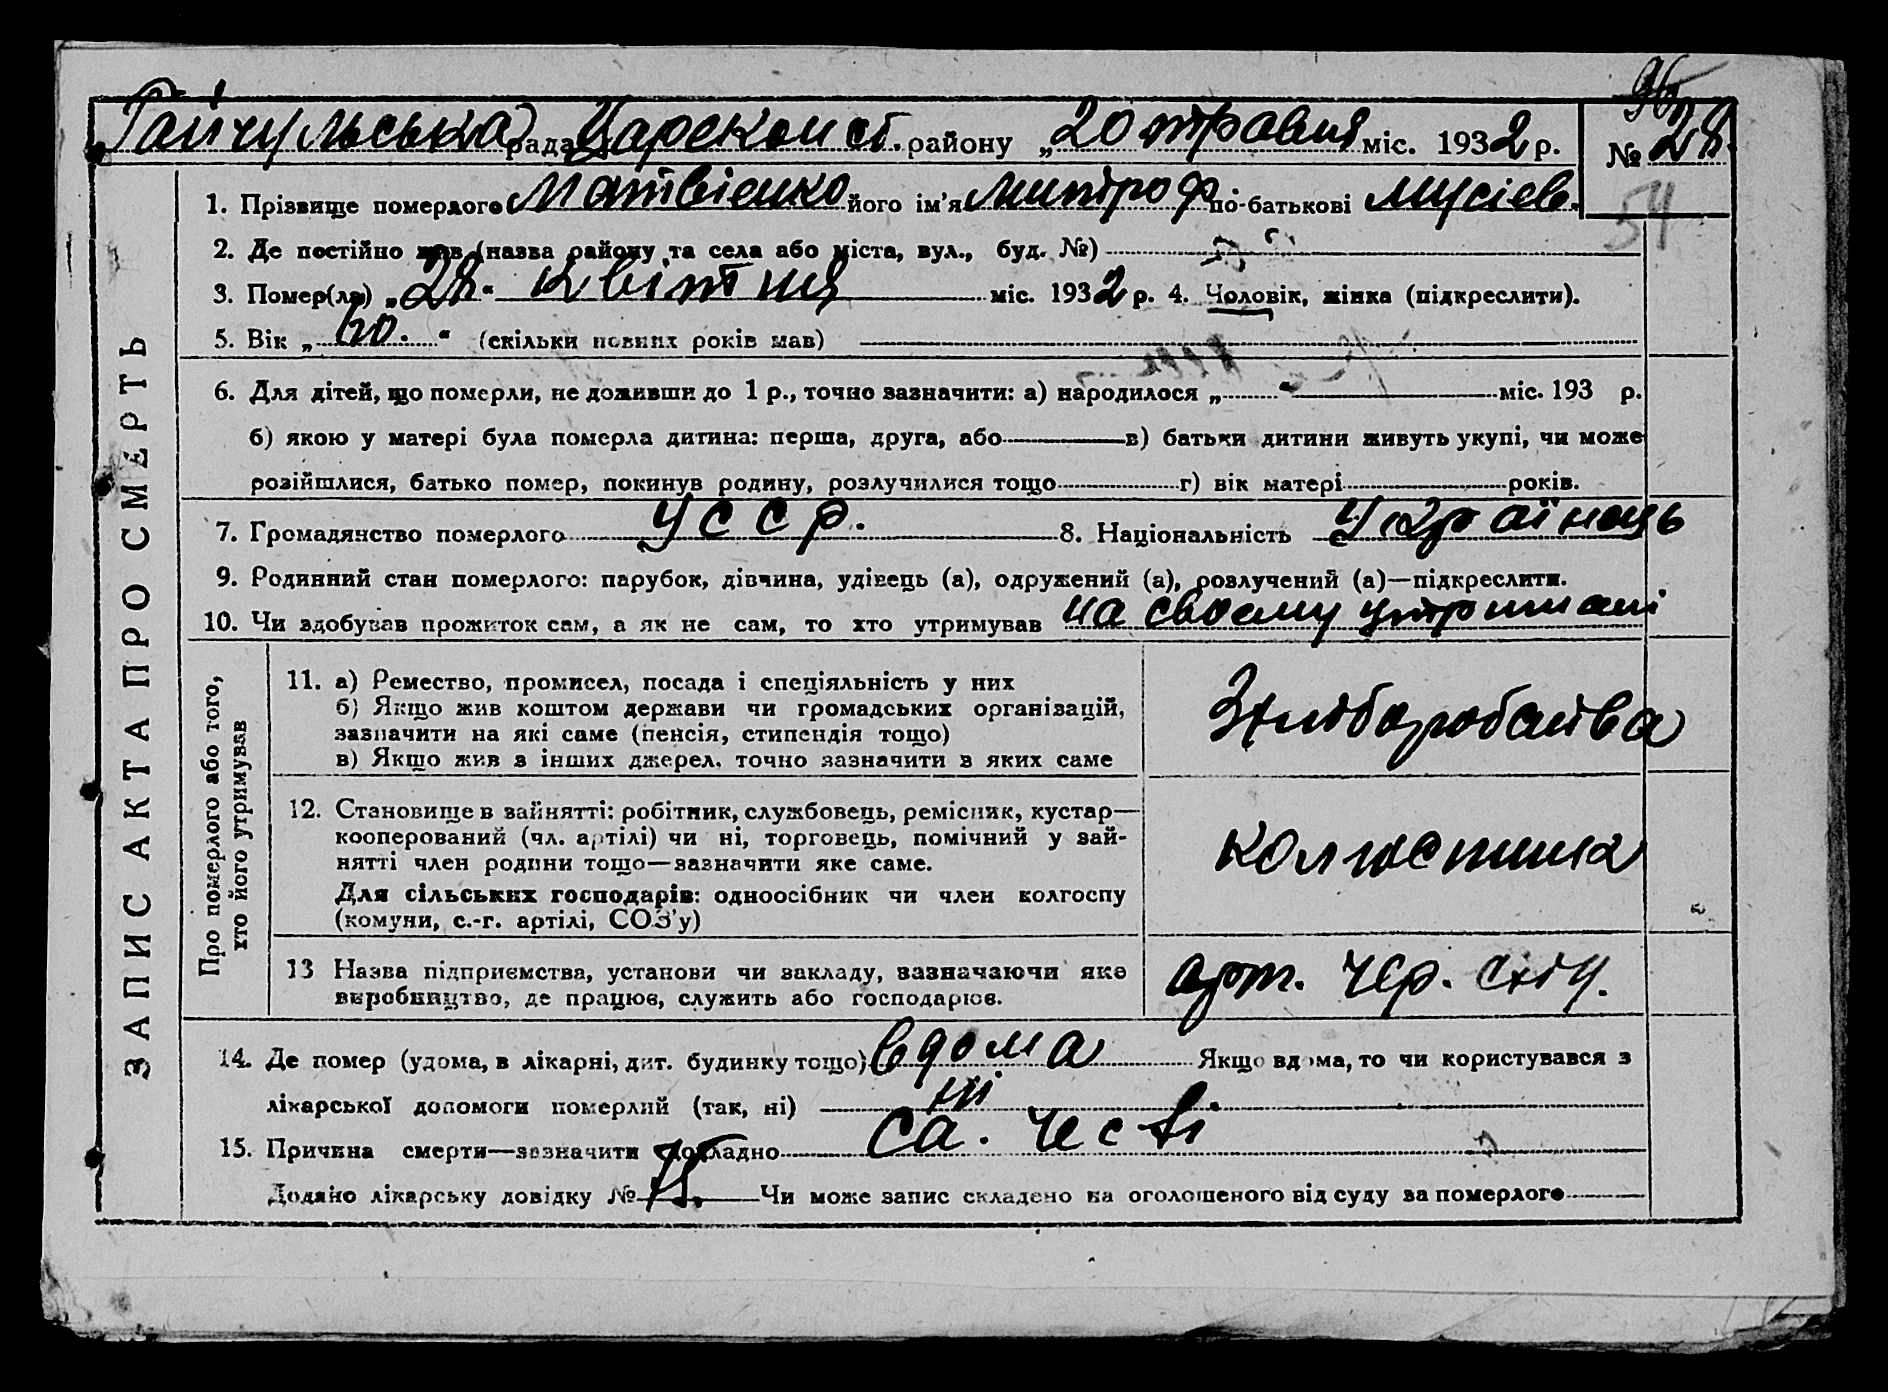 96
Гайчульська рада Царекокст. району „20 травня міс. 1932 р. № 28.
54
1. Прізвище померлого Матвієнко його ім'я Митроф по-батькові Мусієв.
2. Де постійно жив (назва району та села або міста, вул., буд. №)
3. Помер(ла) „28" квітня міс. 1932 р. 4. Чоловік, жінка (підкреслити).
5. Вік „60." (скільки повних років мав)
6. Для дітей, що померли, не доживши до 1 р., точно зазначити: а) народилося „ " міс. 193 р.
б) якою у матері була померла дитина: перша, друга, або в) батьки дитини живуть укупі, чи може
розійшлися, батько помер, покинув родину, розлучилися тощо г) вік матері років.
7. Громадянство померлого УССР. 8. Національність Українець
9. Родинний стан померлого: парубок, дівчина, удівець (а), одружений (а), розлучений (а)—підкреслити.
10. Чи здобував прожиток сам, а як не сам, то хто утримував на своєму утримані
ЗАПИС АКТА ПРО СМЕРТЬ
Про померлого або того,
хто його утримував
11. а) Ремество, промисел, посада і спеціяльність у них
б) Якщо жив коштом держави чи громадських організацій,
зазначити на які саме (пенсія, стипендія тощо)
в) Якщо жив з інших джерел, точно зазначити з яких саме
12. Становище в зайнятті: робітник, службовець, ремісник, кустар—
кооперований (чл. артілі) чи ні, торговець, помічний у зай-
нятті член родини тощо—зазначити яке саме.
Для сільських господарів: одноосібник чи член колгоспу
(комуни, с.-г. артілі, СОЗ'у)
13 Назва підприємства, установи чи закладу, зазначаючи яке
виробництво, де працює, служить або господарює.
арт. Чер. схід.
14. Де помер (удома, в лікарні, дит. будинку тощо) вдома Якщо вдома, то чи користувався з
лікарської допомоги померлий (так, ні) ні
15. Причина смерти—зазначити докладно
Додано лікарську довідку № Чи може запис складено на оголошеного від суду за померлого